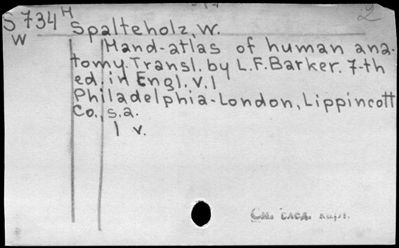 S 734 H 2
W Spalteholz, W.
Hand-atlas of human ana-
tomy. Transl. by L.F. Barker. 7-th
ed. in Engl. v.1
Philadelphia-London, Lippincott
Co., s.a.
1 v.
См. след. карт.